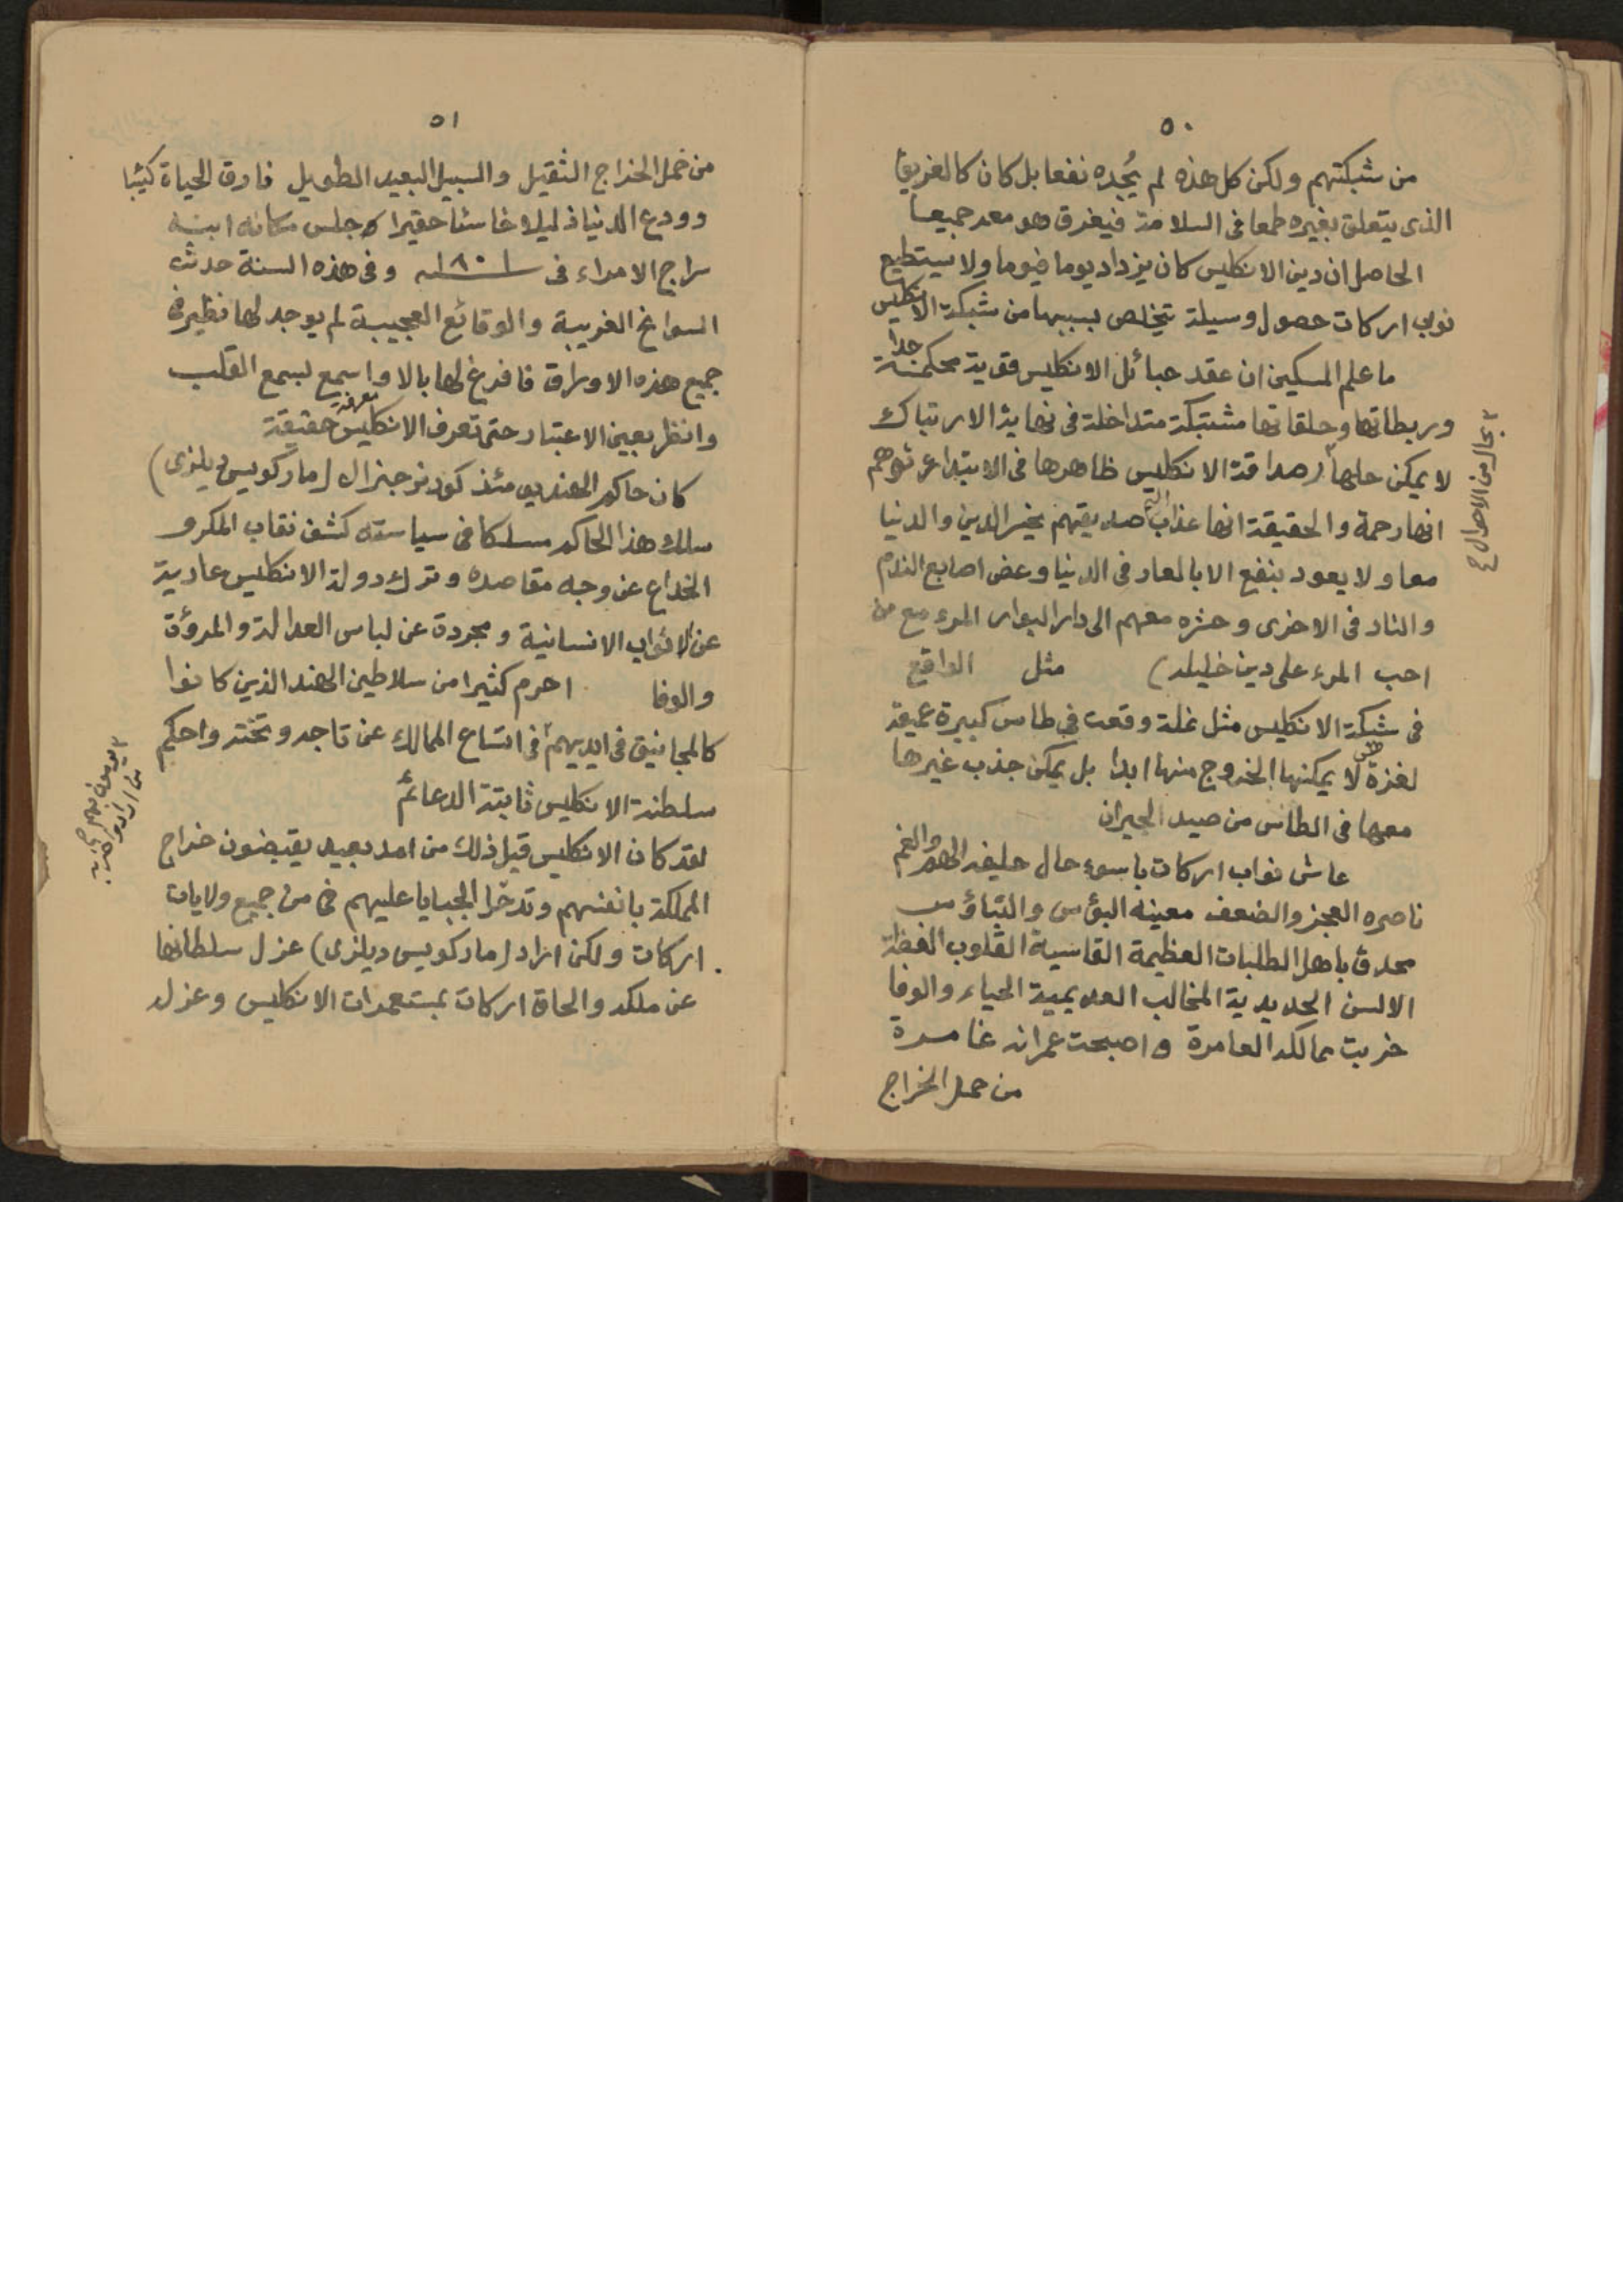 ٥٠
من شبكتهم ولكن كل هذه لم يُجده نفعا بل كان كالغريق
الذى يتعلق بغيره طمعا فى السلامة فيغرق هو معه جميعا
الحاصل ان دين الانكليس كان يزداد يوما فيوما ولا يستطيع
نواب اركات حصول وسيلة يتخلص بسببها من شبكة الانكليس
ما علم المسكين ان عقد حبائل الانكليس قوية محكمة جدا
وربطاتها وحلقاتها مشتبكة متداخلة فى نهاية الارتباك
لا يمكن حلها بحال من الاحوال صداقة الانكليس ظاهرها فى الابتداء توهم
انها رحمة والحقيقة انها عذاب صديقهم يخسر الدين والدنيا
معا ولا يعود بنفع الا بالعار فى الدنيا وعض اصابع الندم
والنار فى الاخرى وحشره معهم الى دار البوار المرء مع من
احب المرء على دين خليله) مثل الواقع
فى شبكة الانكليس مثل نملة وقعت فى طاس كبيرة عميقة
لا يمكنها الخروج منها ابدا بل يمكن جذب غيرها
معها فى الطاس من صيد الجيران
عاش نواب اركات باسوء حال حليفه الهم والغم
ناصره العجز والضعف معينه البؤس والتباؤس
محدق باهل الطلبات العظيمة القاسية القلوب الفظة
الالسن الحديدية المخالب العديمية الحياء والوفا
خربت ممالكه العامرة واصبحت عمرانه غامرة
من حمل الخراج
٥١
من حمل الخراج الثقيل والسبيل البعيد الطويل فارق الحياة كئيبا
وودع الدنيا ذليلا خاسئا حقيرا وجلس مكانه ابنه
سراج الامراء فى ١٨٠١ وفى هذه السنة حدث
السوانح الغريبة والوقائع العجيبة لم يوجد لها نظير فى
جميع هذه الاوراق فافرغ لها بالا واسمع بسمع القلب
وانظر بعين الاعتبار حتى تعرف الانكليس معرفة حقيقة
كان حاكم الهند يومئذ كورنر جنرال (ماركويس ديلزى)
سلك هذا الحاكم مسلكا فى سياسته كشف نقاب المكر و
الخداع عن وجه مقاصده وترك دولة الانكليس عارية
عن الاثواب الانسانية ومجردة عن لباس العدالة والمروؤة
والوفا احرم كثيرا من سلاطين الهند الذين كانوا
كالمجانيق فى ايديهم فى اتساع الممالك عن تاجه وتخته واحكم
سلطنة الانكليس ثابتة الدعائم
لقد كان الانكليس قبل ذلك من امد بعيد يقبضون خراج
المملكة بانفسهم وتدخر الجبايا عليهم من جميع ولايات
اركات ولكن اراد (ماركويس ديلزى) عزل سلطانها
عن ملكه والحاق اركات بمستعمرات الانكليس وعزله